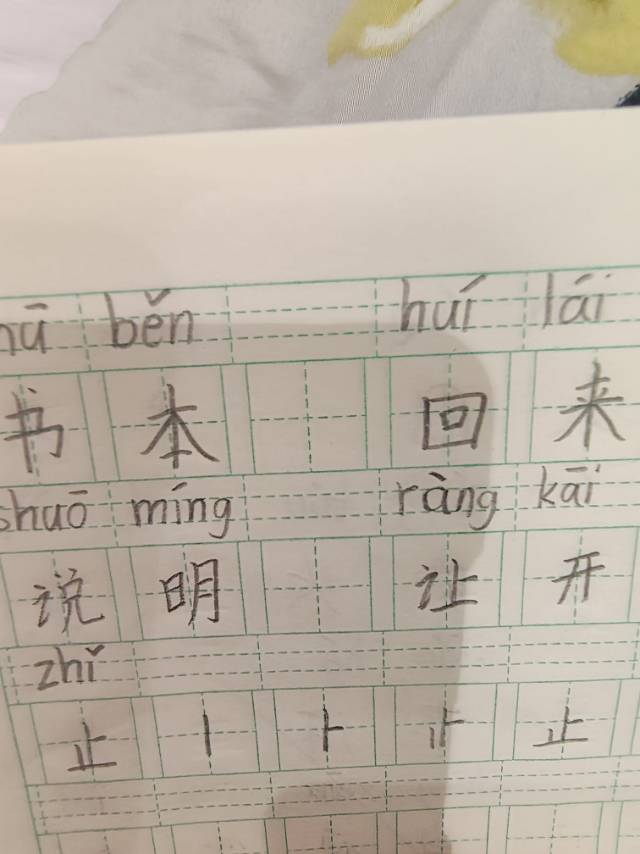 hū běn huí lái
书本 回来
shuō míng ràng kāi
说明 让开
zhǐ
止 丨 ⺊ 止